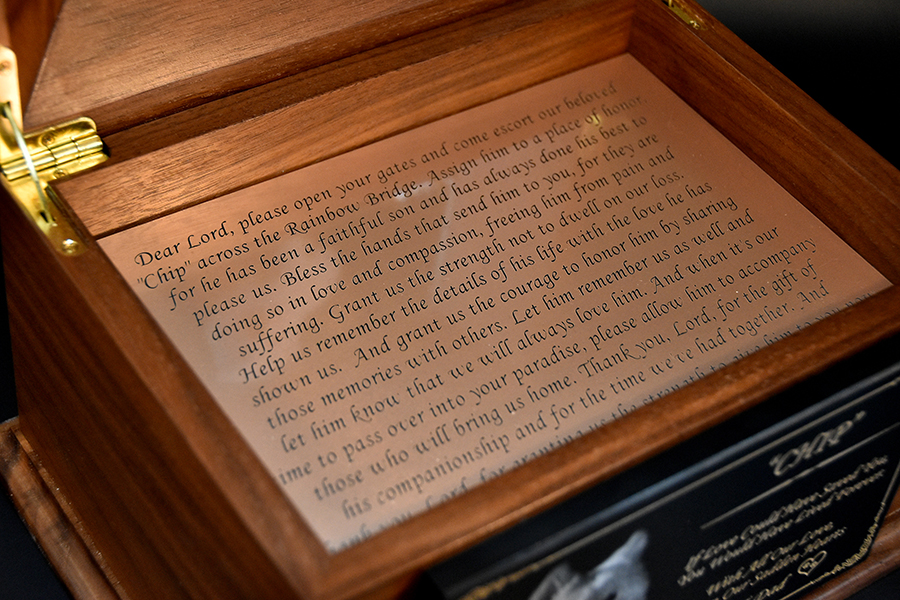 Dear Lord, please open your gates and come escort our beloved
"Chip" across the Rainbow Bridge. Assign him to a place of honor,
for he has been a faithful son and has always done his best to
please us. Bless the hands that send him to you, for they are
doing so in love and compassion, freeing him from pain and
suffering. Grant us the strength not to dwell on our loss.
Help us remember the details of his life with the love he has
shown us. And grant us the courage to honor him by sharing
those memories with others. Let him remember us as well and
let him know that we will always love him. And when it's our
ime to pass over into your paradise, please allow him to accompany
those who will bring us home. Thank you, Lord, for the gift of
his companionship and for the time we've had together. And
you, Lord, for granting us the strength to give him to you
"CHIP"
If Love Could Have Saved You
You Would Have Lived Forever
With All Our Love
Dad